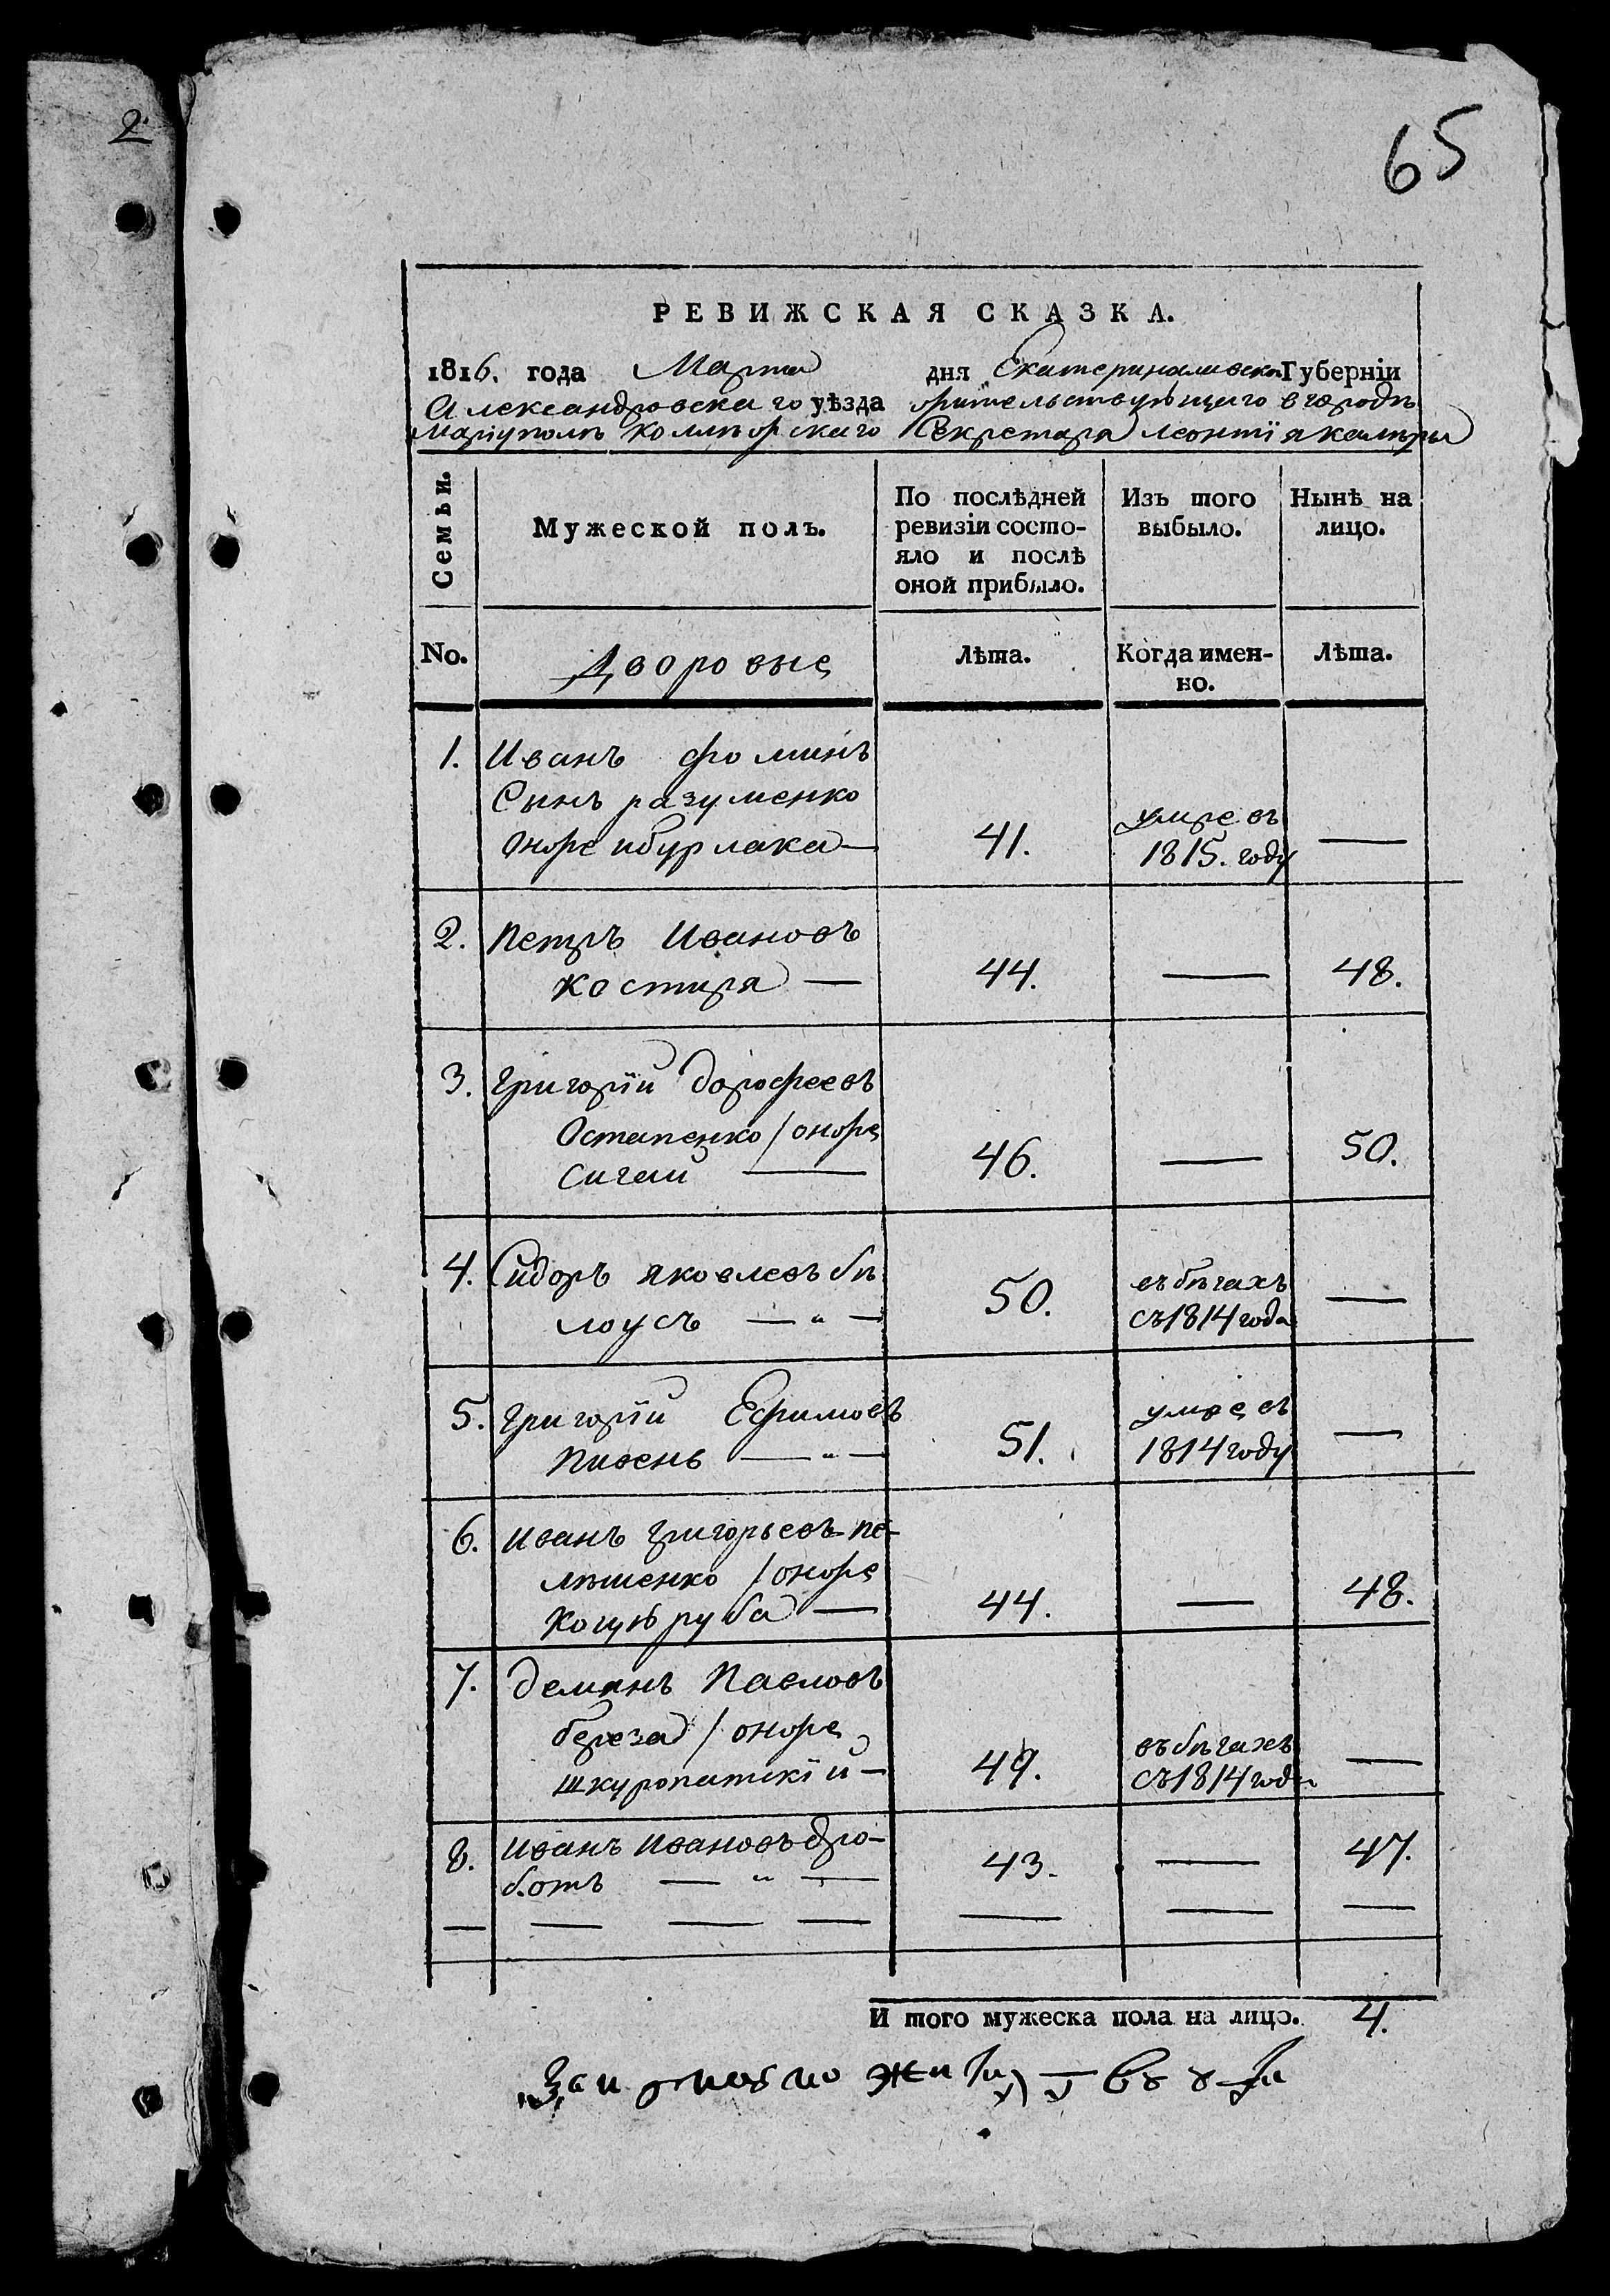 2
65
РЕВИЖСКАЯ СКАЗКА.
1816. года Марта дня Екатеринославской Губерніи
Александровскаго уѣзда жительствующаго в городѣ
Маріуполѣ коллежскаго Секретаря Леонтія
Семьи.
Мужеской полъ.
По послѣдней ревизіи состо-
яло и послѣ
оной прибыло.
Изъ того
выбыло.
Нынѣ на
лицо.
No.
Дворовые
Лѣта.
Когда имен-
но.
Лѣта.
1. Иванъ Фоминъ
Сынъ разуменко
онже и бурлака — 41. умре въ 1815. году —
2. Петръ Ивановъ
Костиря — 44. — 48.
3. Григорій дорофеевъ
Остапенко / онже
Сигай — 46. — 50.
4. Сидоръ яковлевъ бѣ
лоусъ — " — 50. въ бѣгахъ съ 1814 года —
5. Григорій Ефимовъ
Пивень — " — 51. умре въ 1814 году —
6. Иванъ Григорьевъ пе-
лѣшенко / онже
Коцюруба — 44. — 48.
7. демянъ Павловъ
береза / онже
шкуропатскій — 49. въ бѣгахъ съ 1814 года —
8. Иванъ Ивановъ дро-
ботъ — " — 43. — 47.
И того мужеска пола на лицо. 4.